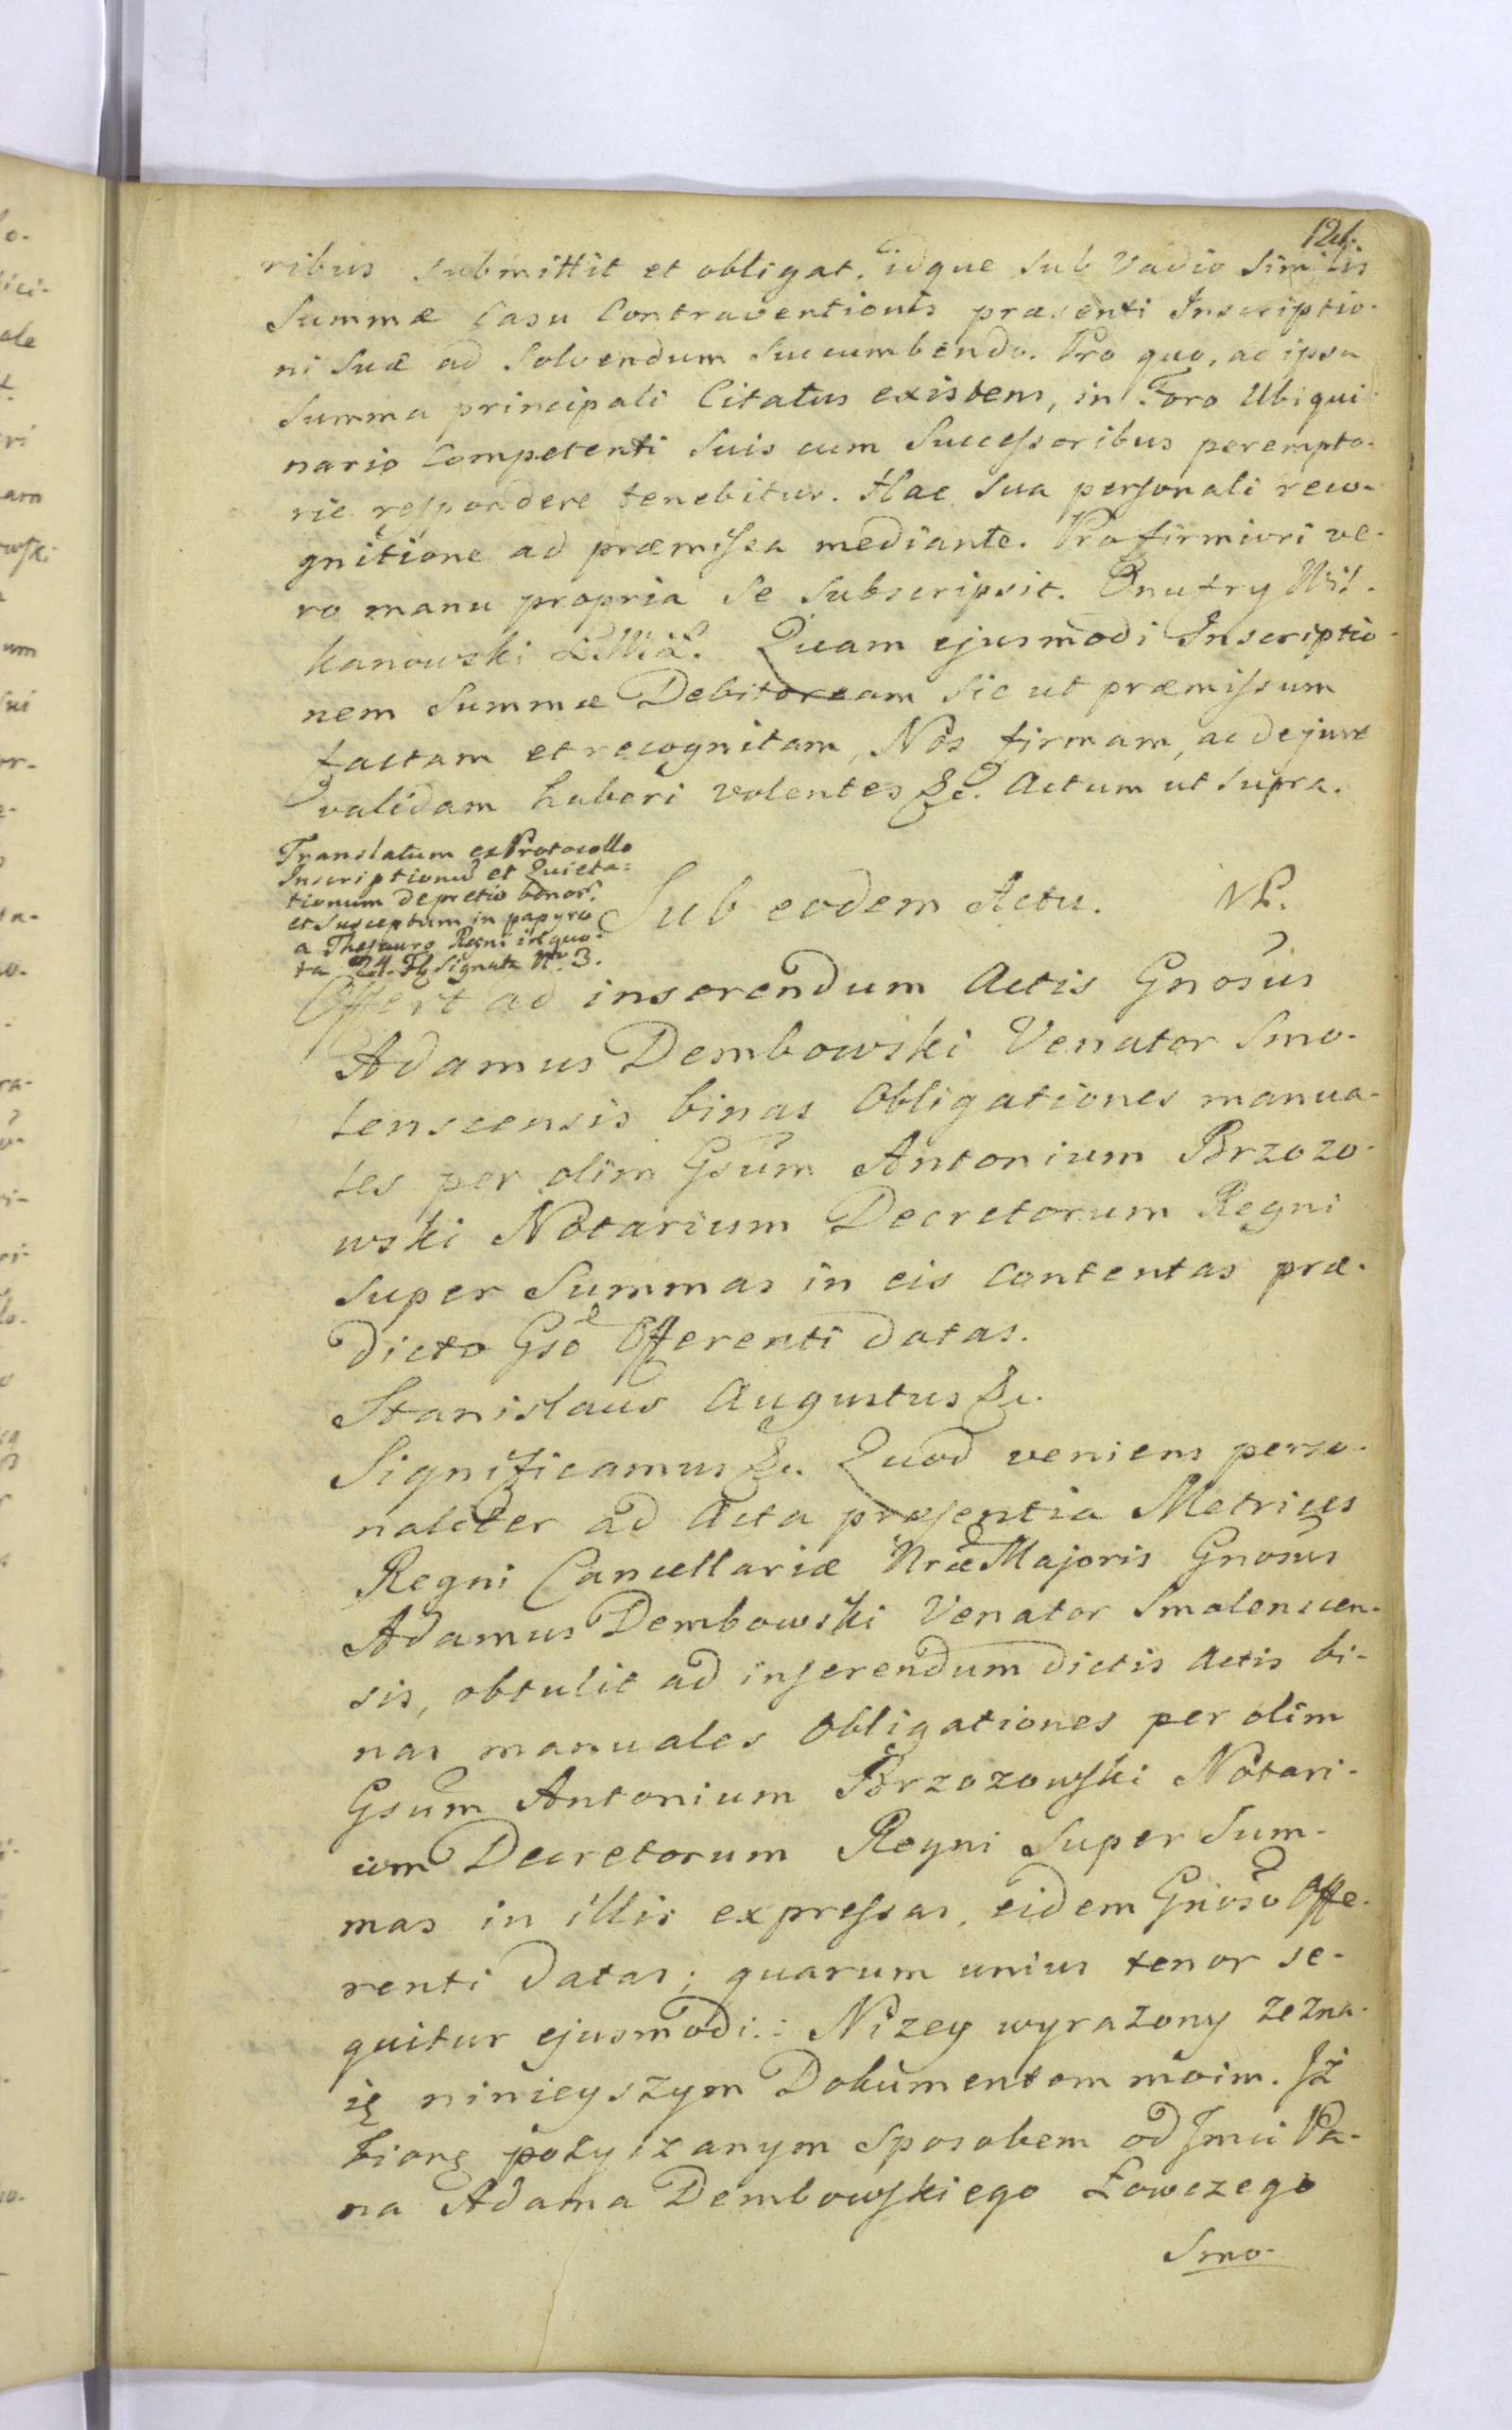 121.
ribus submittit et obligat. idque sub Vadio similis
Summæ Casu Contraventionis præsenti Inscriptio-
ni suæ ad solvendum succumbendo. Pro quo, ac ipsa
Summa principali Citatus existens, in Foro Ubiqui
nario Competenti suis cum Successoribus perempto-
rie respondere tenebitur. Hac sua personali reco-
gnitione ad præmissa mediante. Pro firmiori ve-
ro manu propria se subscripsit. Onufry Wil-
kanowski Quam ejusmodi Inscriptio-
nem Summæ Debitoream sic ut præmissum
factam et recognitam, Nos firmam, ac de jure
validam haberi volentes &c. Actum ut supra.
Translatum ex Protocollo
Inscriptionum et Quieta=
tionum de pretio bonor.
et susceptum in papyro
a Thesauro Regni in quo-
ta 24. Fl. Signata Nro. 3.
Sub eodem Actu. NP.
Offert ad inserendum Actis Gnosus
Adamus Dembowski Venator Smo-
lenscensis binas Obligationes manua-
les per olim Gsum Antonium Brzozo-
wski Notarium Decretorum Regni
super Summas in eis Contentas præ-
dicto Gso Offerenti datas.
Stanislaus Augustus &c.
Significamus &c. Quod veniens perso-
naliter ad Acta præsentia Metrices
Regni Cancellariæ Nræ Majoris Gnosus
Adamus Dembowski Venator Smolenscen-
sis, obtulit ad inserendum dictis Actis bi-
nas manuales Obligationes per olim
Gsum Antonium Brzozowski Notari-
um Decretorum Regni super Sum-
mas in illis expressas, eidem Gnoso Offe-
renti datas; quarum unius tenor se-
quitur ejusmodi: Nizey wyrazony zezna-
ię ninieyszym Dokumentem moim. Jż
biorę pożyczanym sposobem od Jmci Pa-
na Adama Dembowskiego Łowczego
Smo-